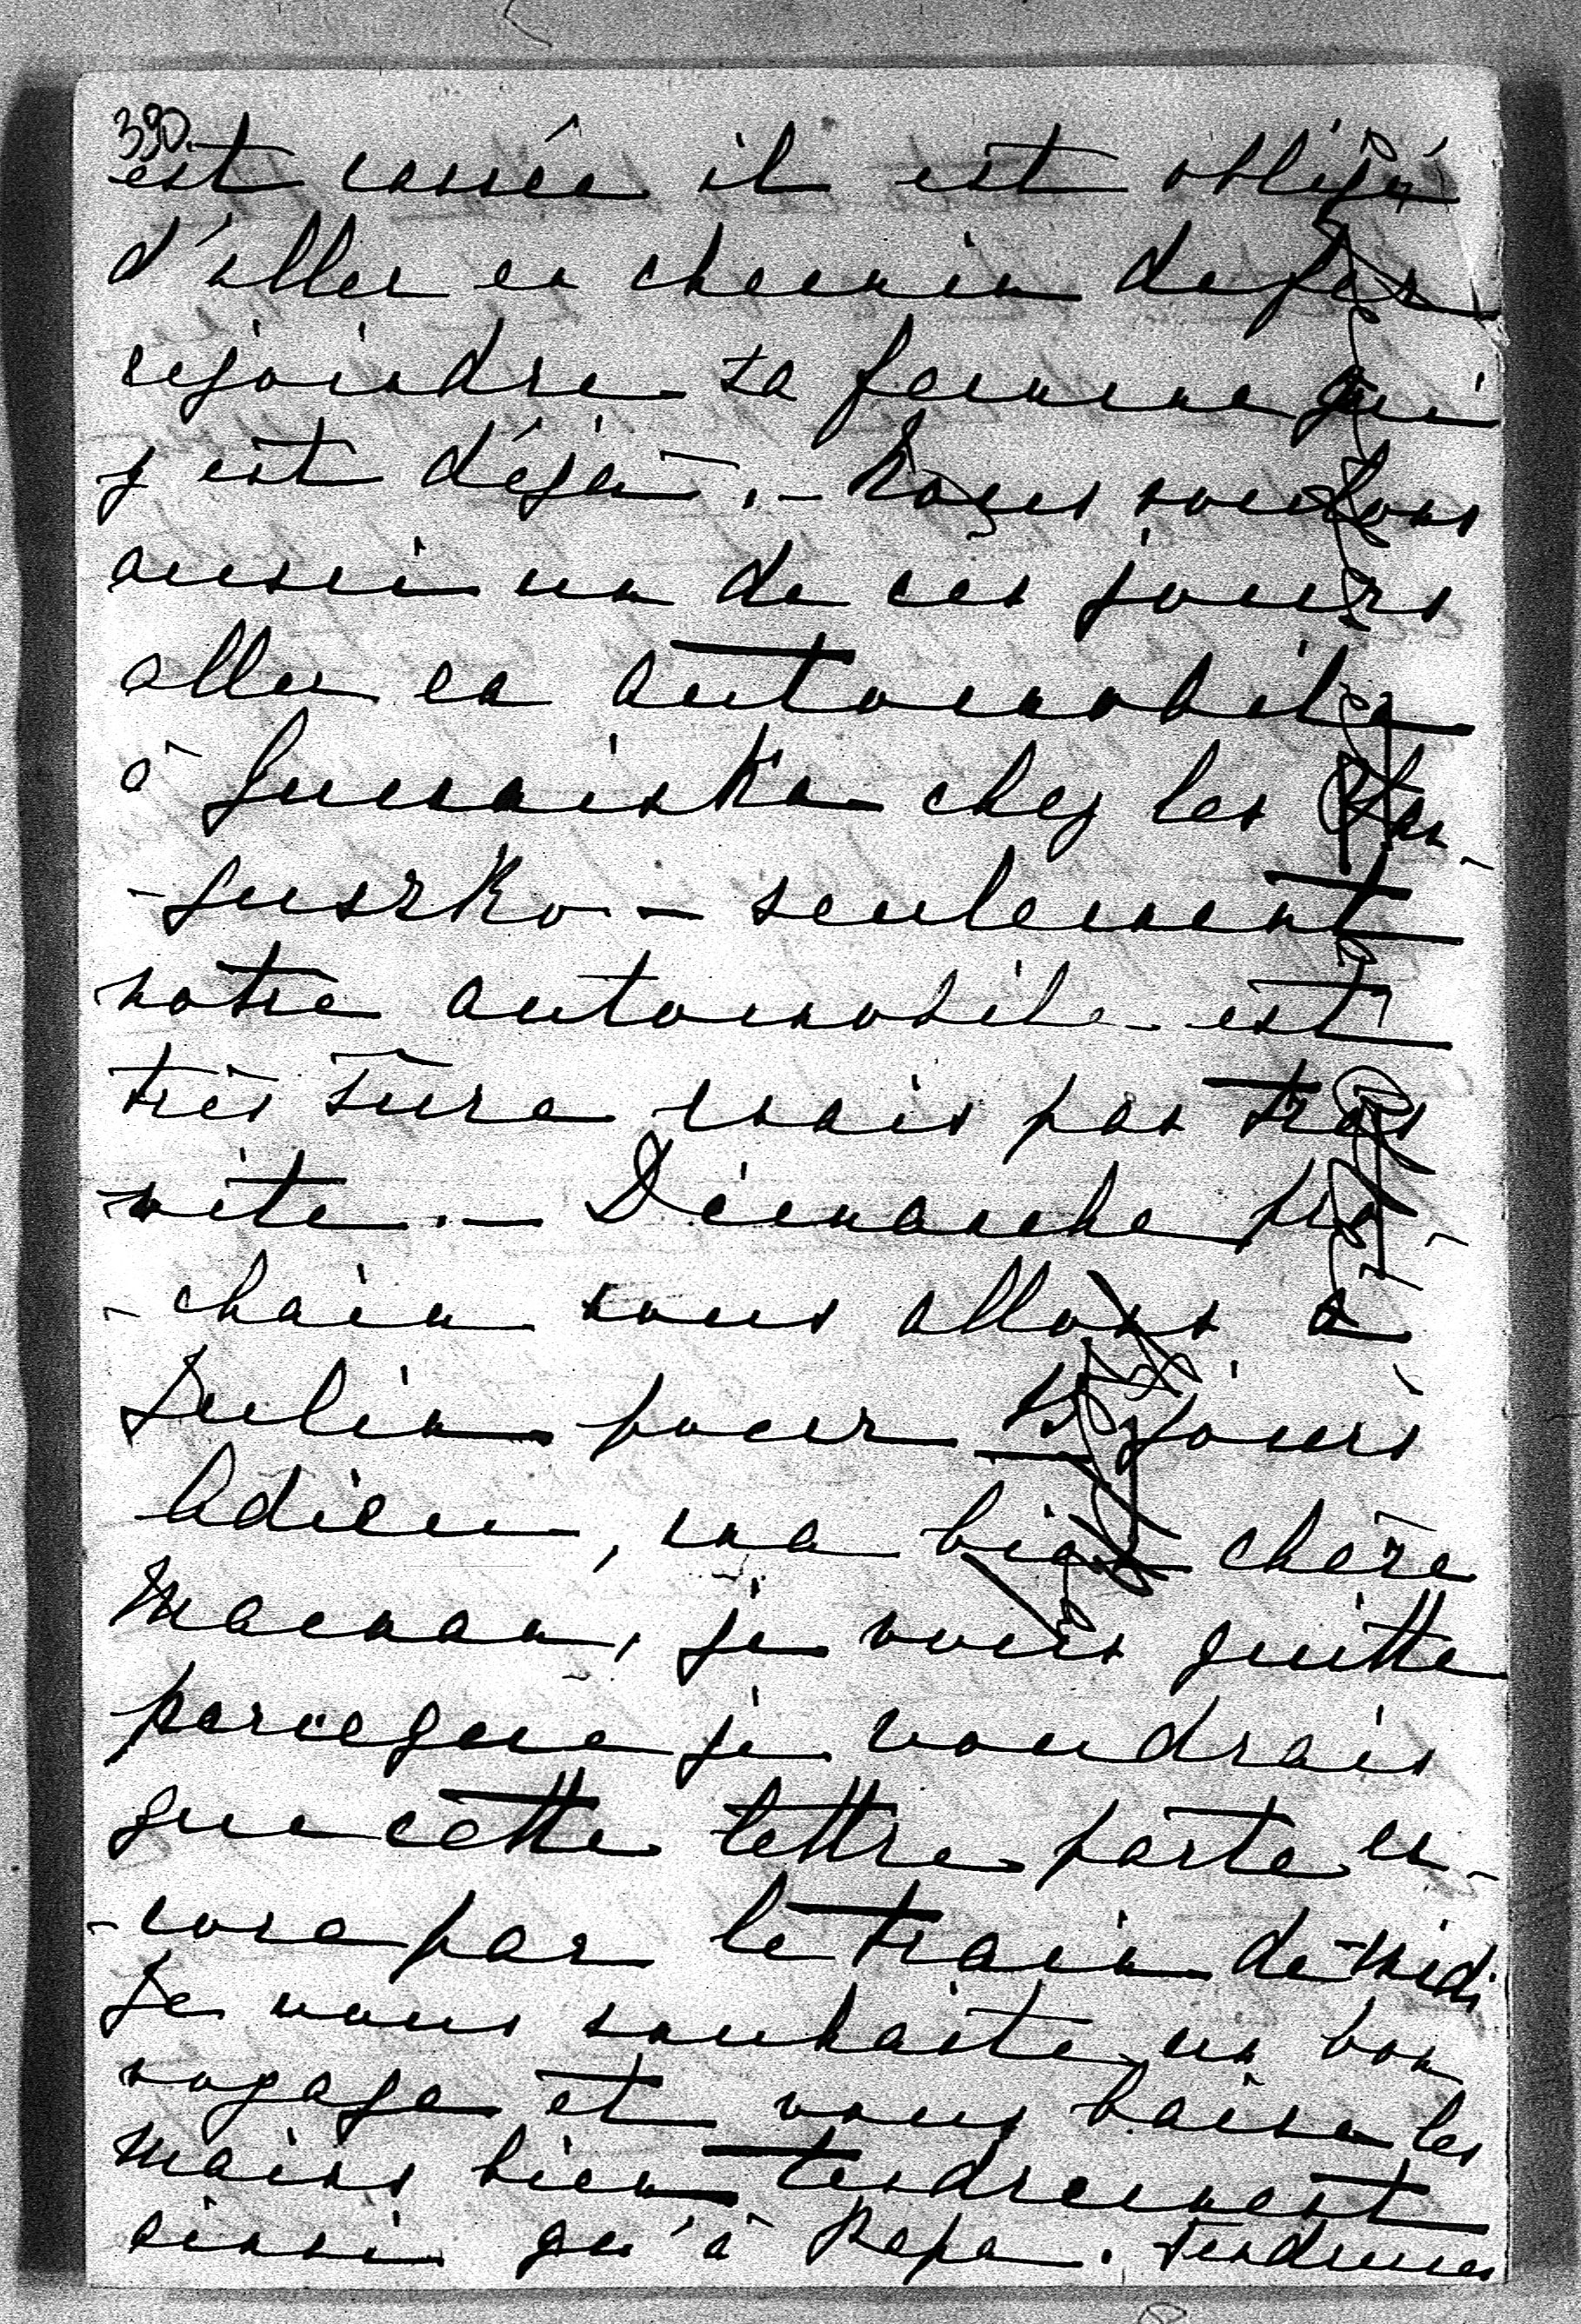 390.
est cassée il est obligé
d'aller en chemin de fer
rejoindre sa femme qui
y est déjà. - Nous voulons
aussi un de ces jours
aller en automobile
à Gumniska chez les San-
-guszko - seulement
notre automobile est
très sûre mais pas très
vite. - Dimanche pro-
-chain nous allons à
Julin pour 15 jours
Adieu, ma bien chère
Maman, je vous quitte
parceque je voudrais
que cette lettre parte en-
-core par le train de midi
Je vous souhaite un bon
voyage et vous baise les
mains bien tendrement
ainsi qu'à Papa. Tendresses